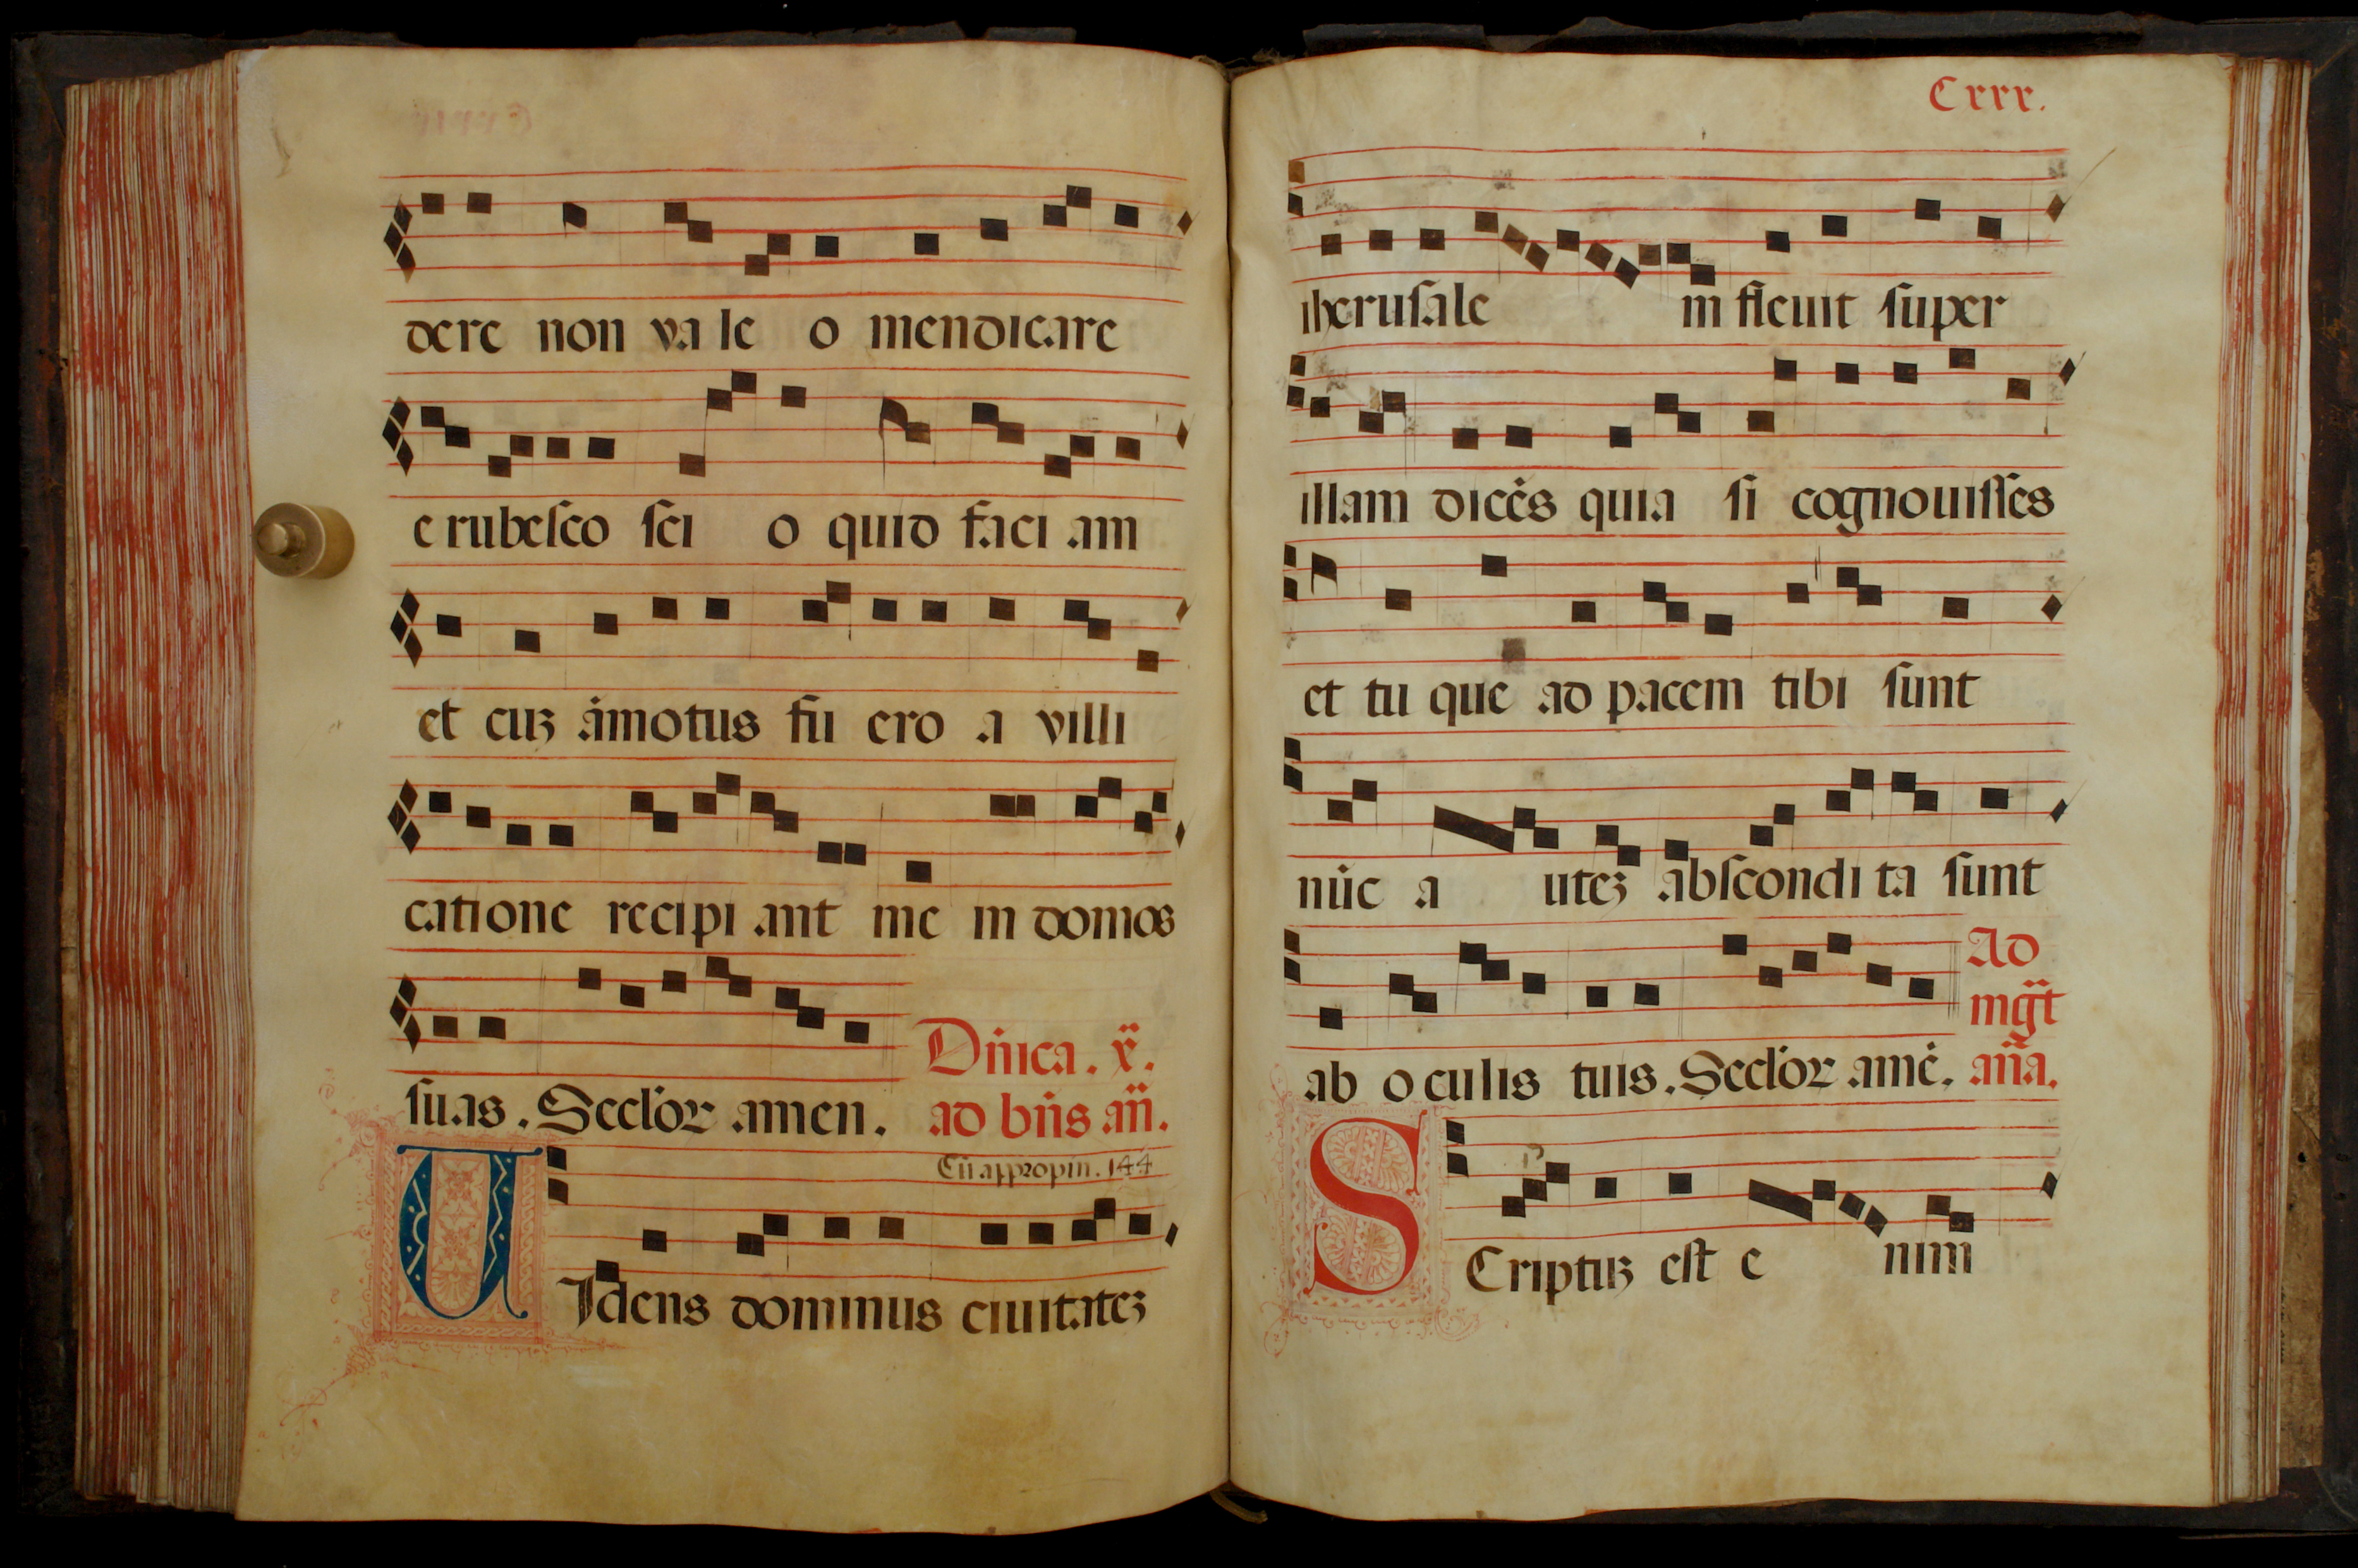 dere non va le o mendicare
e rubesco sci o quid faci am
et cuꝫ ámotus fu ero a villi
catione recipi ant me in domos
suas. Secl'oꝝ amen. Dn̄ica. x̄.
ad bn̄s an̄.
Cū appropin. 144
UIdens dominus ciuitateꝫ
Cxxx.
iherusale m fleuit super
illam dicēs quia si cognouisses
et tu que ad pacem tibi sunt
nūc a uteꝫ abscondi ta sunt
ab oculis tuis. Secl'oꝝ amē. Ad
mḡt
an̄a.
SCriptuꝫ est e nim